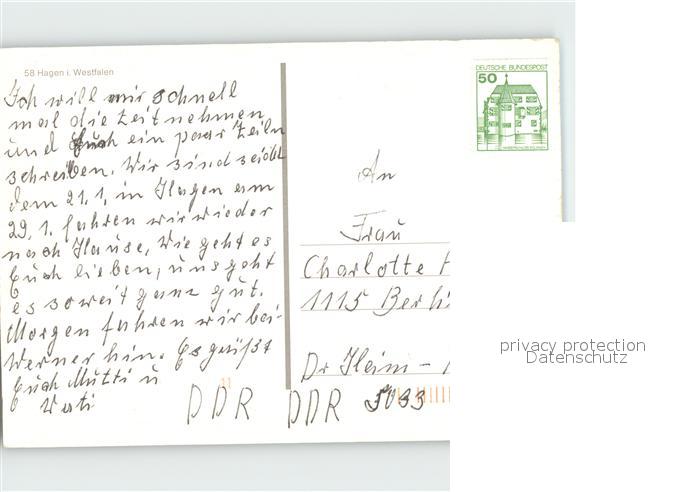 58 Hagen i. Westfalen
Ich will mir schnell
mal die Zeit nehmen
und Euch ein paar Zeilen
schreiben. Wir sind seidt
dem 21.1. in Hagen am
29.1. fahren wir wieder
nach Hause, Wie geht es
Euch lieben, uns geht
es soweit ganz gut.
Morgen fahren wir bei
Werner hin. Es grüßt
Euch Mutti u
Vati
DEUTSCHE BUNDESPOST
50
An
Frau
Charlotte H
1115 Berli
Dr Heim-
DDR DDR 5033
privacy protection
Datenschutz